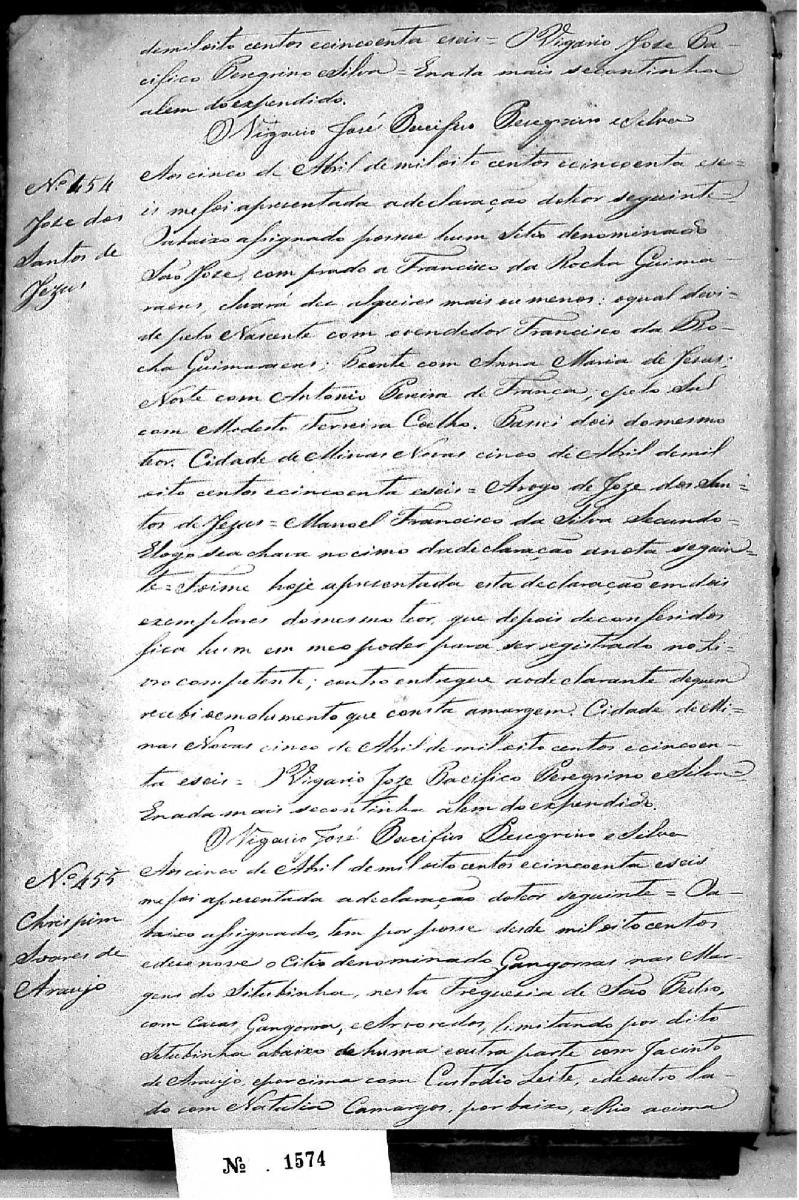 demil oito centos ecincoenta eseis = O Vigario Jose Pa-
cifico Peregrino e Silva = Enada mais secontinha
alem do expendido.
O Vigario José Pacifico Peregrino e Silva
Nº 454
Joze dos
Santos de
Jezus
Aos cinco de Abril de mil oito centos ecincoenta ese-
is me foi apresentada adeclaração dotheor seguinte
O abaixo assignado possue hum Sitio denominado
São Jose, com prado a Francisco da Rocha Guima-
raens, levará dez alqueires mais ou menos: oqual devi-
de pelo Nascente com ovendedor Francisco da Ro-
cha Guimaraens; Poente com Anna Maria de Jesus;
Norte com Antonio Pereira de Franca; epelo Sul
com Modesto Ferreira Coelho. Passei dois domesmo
teor. Cidade de Minas Novas cinco de Abril demil
oito centos ecincoenta eseis = Arogo de Joze dos San-
tos de Jezus = Manoel Francisco da Silva Secundo =
Elogo seachava nocimo dadeclaração anota seguin-
te = Foime hoje apresentada esta declaração em dois
exemplares domesmo teor, que depois deconferidos
fica hum em meo poder para ser registrado no Li-
vro competente; eoutro entregue aodeclarante dequem
recebi oemolumento que consta amargem. Cidade de Mi-
nas Novas cinco de Abril de mil oito centos ecincoen-
ta eseis = O Vigario Joze Pacifico Peregrino e Silva =
Enada mais secontinha alem do expendido.
O Vigario José Pacifico Peregrino e Silva
Nº 455
Chrispim
Soares de
Araujo
Aos cinco de Abril de mil oito centos ecincoenta eseis
me foi apresentada adeclaração doteor seguinte = O a-
baixo assignado, tem por posse desde mil oito centos
edeos nove o Citio denominado Gangorras nas Mar-
gens do Setubinha, nesta Freguesia de São Pedro,
com casas, Gangorra, e Arvoredos, limitando por dito
Setubinha abaixo de huma eoutra parte com Jacinto
de Araujo, eporcima com Custodio Leite, edeoutro la-
do com Natalia Camargos, por baixo, e Rio acima
Nº 1574